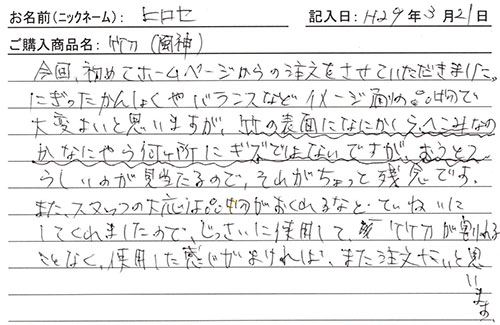 お名前(ニックネーム): ヒロセ 記入日: H29年3月21日
ご購入商品名: 竹刀 (風神)
今回、初めてホームページからの注文をさせていただきました。
にぎったかんしょくやバランスなどイメージ通りの品物で
大変よいと思いますが、竹の表面になにかしらへこみなの
かなにやら何ヶ所にキズではないですが、おうとつ
らしいのが見当たるので、それがちょっと残念です。
また、スタッフの対応は品物がおくれるなど、ていねいに
してくれましたので、じっさいに使用して、竹刀が割れる
ことなく、使用した感じがよければ、また注文したいと思
います。